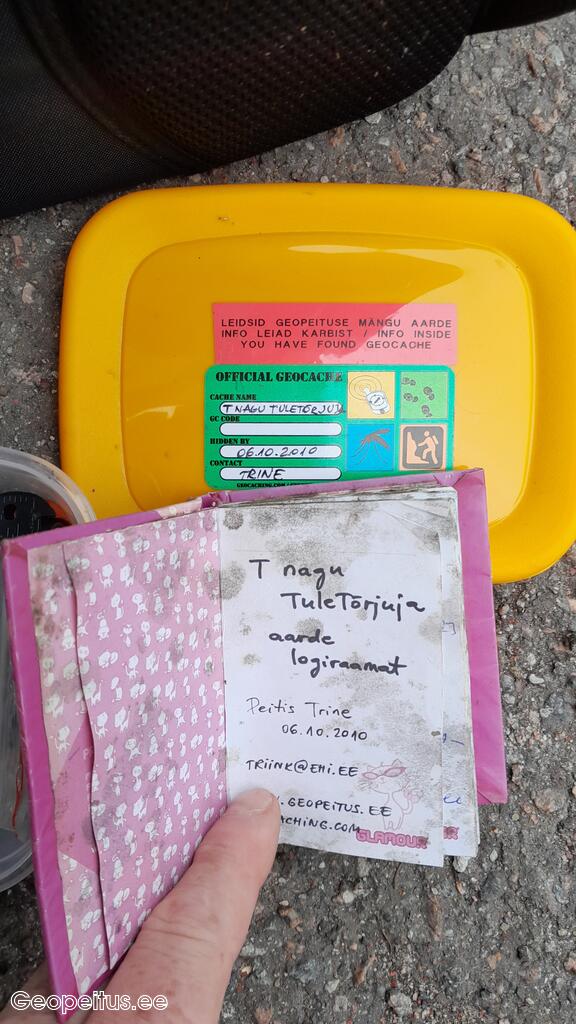 LEIDSID GEOPEITUSE MÄNGU AARDE
INFO LEIAD KARBIST / INFO INSIDE
YOU HAVE FOUND GEOCACHE
OFFICIAL GEOCACHE
CACHE NAME
T NAGU TULETÕRJUJA
GC CODE
HIDDEN BY
06.10.2010
CONTACT
TRINE
GEOCACHING.COM
T nagu
TuleTõrjuja
aarde
logiraamat
Peitis Trine
06.10.2010
TRIINK@EHI.EE
.GEOPEITUS.EE
ACHING.COM
GLAMOUR
Geopeitus.ee